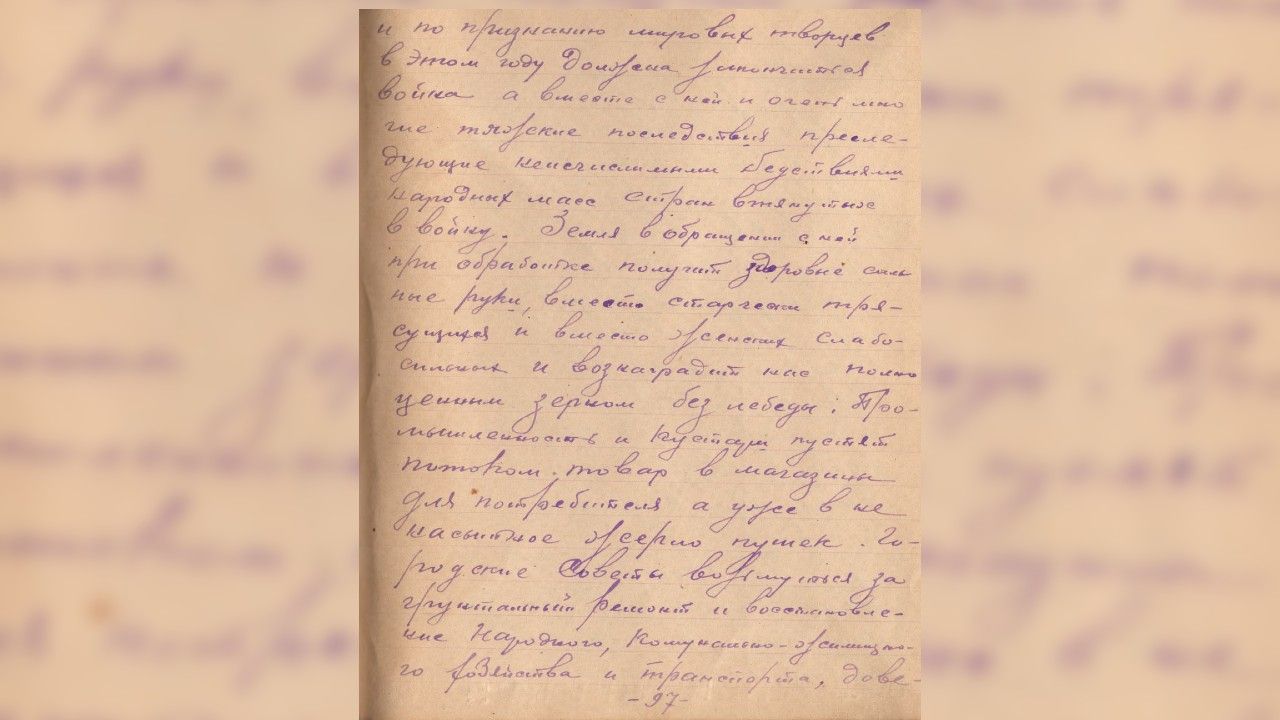 и по признанию мировых творцев
в этом году должна закончится
война а вместе с ней и очень мно
гие тяжские последствия пресле-
дующие неисчислимыми бедствиями
народных масс стран втянутых
в войну. Земля в обращении с ней
при обработке получит здоровые силь
ные руки, вместо старчески тря-
сущихся и вместо женских слабо-
сильных и вознаградит нас полно
ценным зерном без лебеды. Про-
мышленность и кустари пустят
потоком товар в магазины
для потребителя а уже в не
насытное жерло пушек. Го-
родские Советы возьмуться за
грунтальный ремонт и восстановле-
ние Народного, Комунально-жилищно-
го хозяйства и транспорта, дове-
-97-